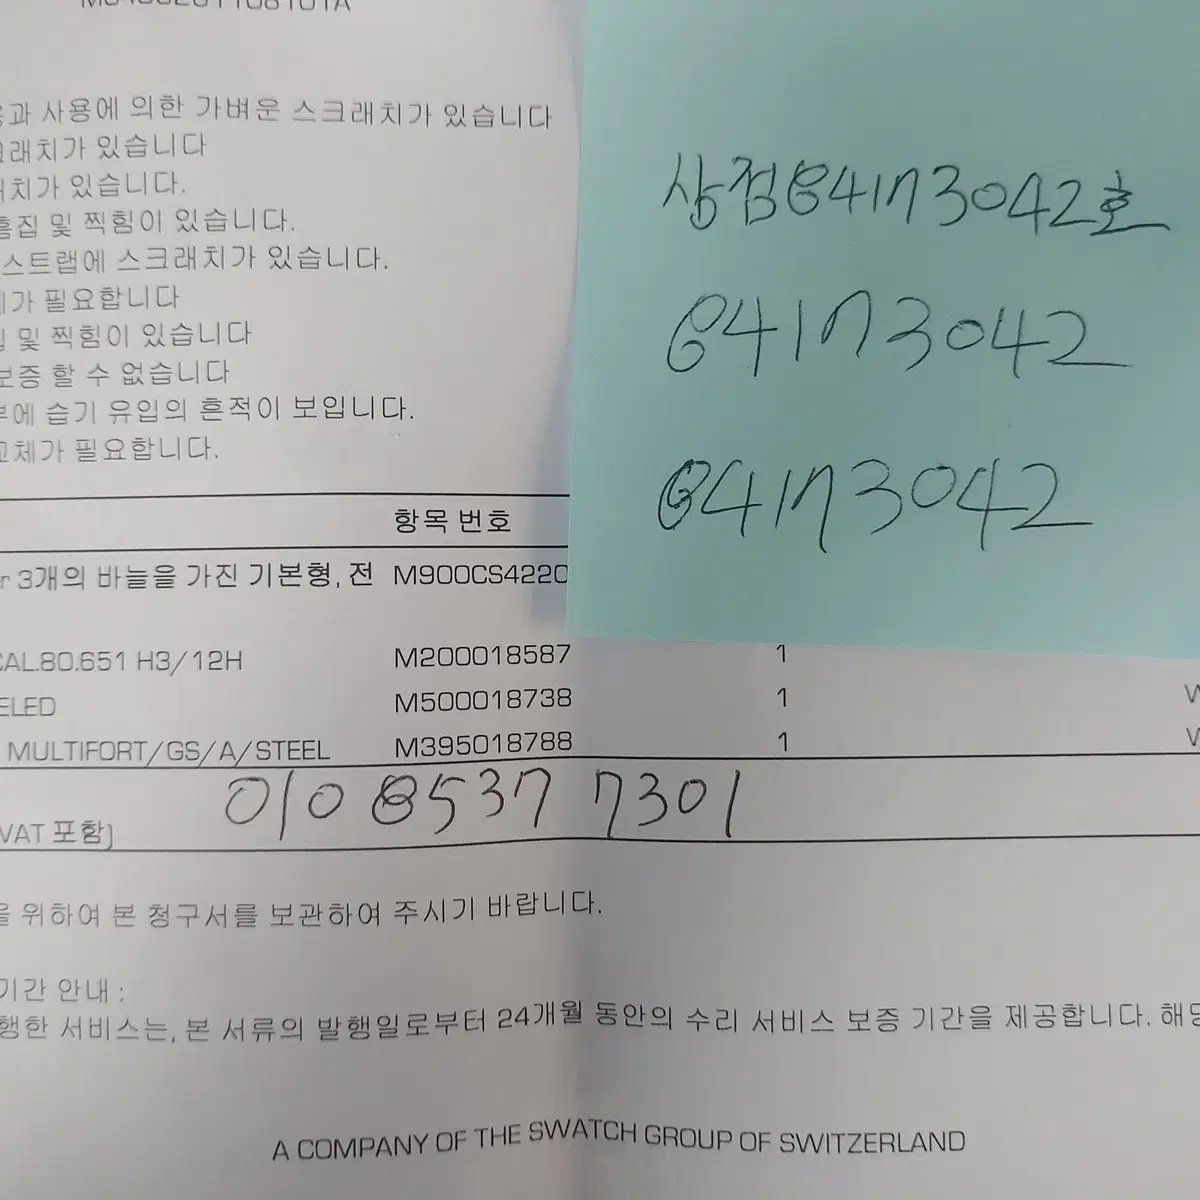 상점84173042호
84173042
84173042
과 사용에 의한 가벼운 스크래치가 있습니다
크래치가 있습니다
치가 있습니다.
흠집 및 찍힘이 있습니다.
스트랩에 스크래치가 있습니다.
가 필요합니다
및 찍힘이 있습니다
보증 할 수 없습니다
부에 습기 유입의 흔적이 보입니다.
교체가 필요합니다.
항목 번호
r 3개의 바늘을 가진 기본형, 전 M900CS4220
CAL.80.651 H3/12H M200018587 1
ELED M500018738 1 W
MULTIFORT/GS/A/STEEL M395018788 1 W
010 8537 7301
VAT 포함)
을 위하여 본 청구서를 보관하여 주시기 바랍니다.
기간 안내 :
행한 서비스는, 본 서류의 발행일로부터 24개월 동안의 수리 서비스 보증 기간을 제공합니다. 해당
A COMPANY OF THE SWATCH GROUP OF SWITZERLAND